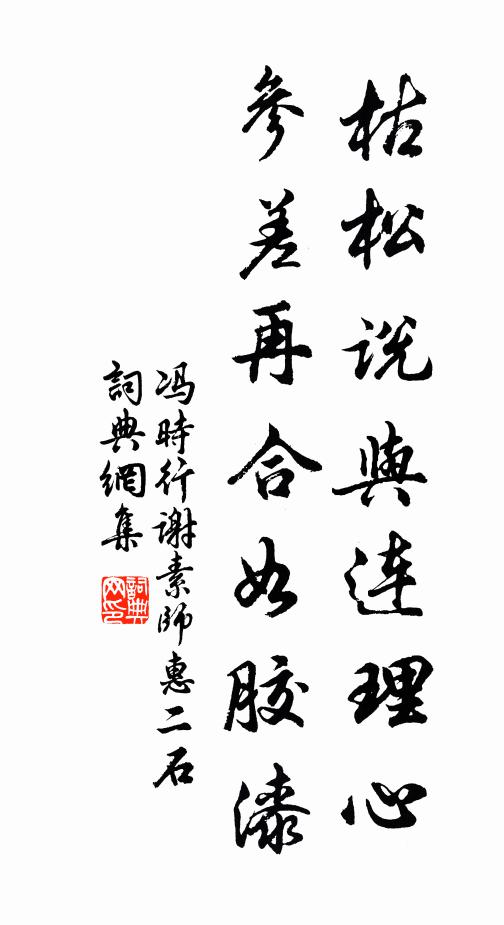 枯松说與连理心
參差再合如胶漆
冯時行谢素師惠二石
詞典網集
詞典网印